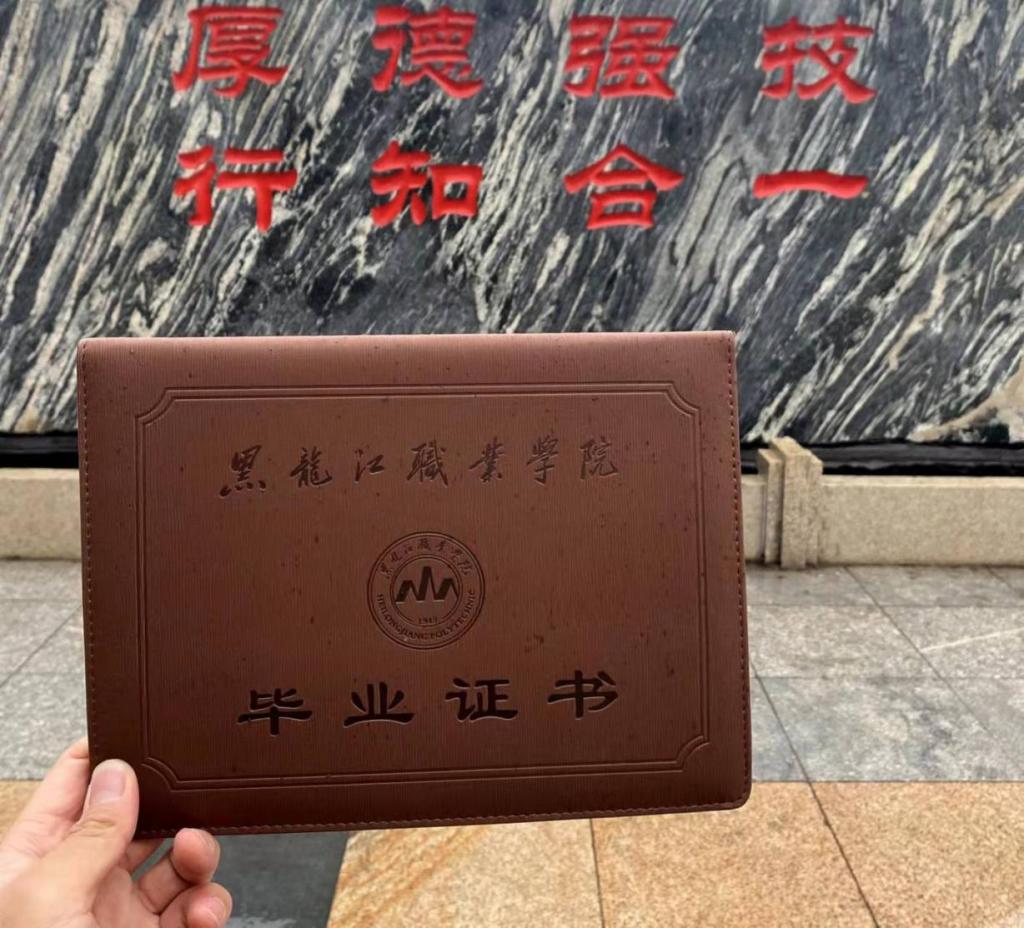 厚德强技
行知合一
黑龍江職業學院
黑龙江职业学院
1948
HEILONGJIANG POLYTECHNIC
毕业证书